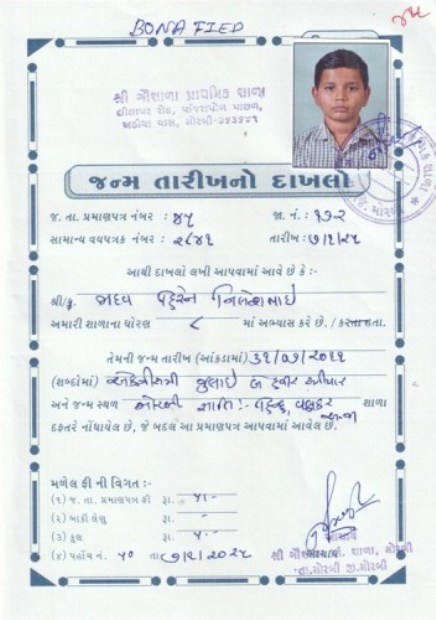 BONAFIED
૪૫
શ્રી ગૌશાળા પ્રાથમિક શાળા
લીલાપર રોડ, પાંજરાપોળ પાછળ,
મોરબી-૩૬૩૬૪૧
જન્મ તારીખનો દાખલો
જ. તા. પ્રમાણપત્ર નંબર : ૪૫ જા. નં. : ૧૭૨
સામાન્ય વયપત્રક નંબર : ૨૮૪૬ તારીખ : ૭/૨/૨૫
આથી દાખલો લખી આપવામાં આવે છે કે :-
શ્રી/કુ.
અમારી શાળાના ધોરણ ૮ માં અભ્યાસ કરે છે. / કરતા હતા.
તેમની જન્મ તારીખ (આંકડામાં) ૩૧/૦૭/૨૦૧૧
(શબ્દોમાં) એકત્રીસમી જુલાઈ બે હજાર અગીયાર
અને જન્મ સ્થળ મોરબી જાતિ :- હિન્દુ, શાળા
દફતરે નોંધાયેલ છે, જે બદલ આ પ્રમાણપત્ર આપવામાં આવેલ છે.
મળેલ ફી ની વિગત :-
(૧) જ. તા. પ્રમાણપત્ર ફી રૂા. ૫૦-
(૨) બાકી લેણુ રૂા. -
(૩) કુલ રૂા. ૫૦-
(૪) પહોંચ નં. ૫૦ તા. ૭/૨/૨૦૨૫
આચાર્ય
શ્રી ગૌશાળા પ્રા. શાળા, મોરબી
તા.મોરબી જી.મોરબી